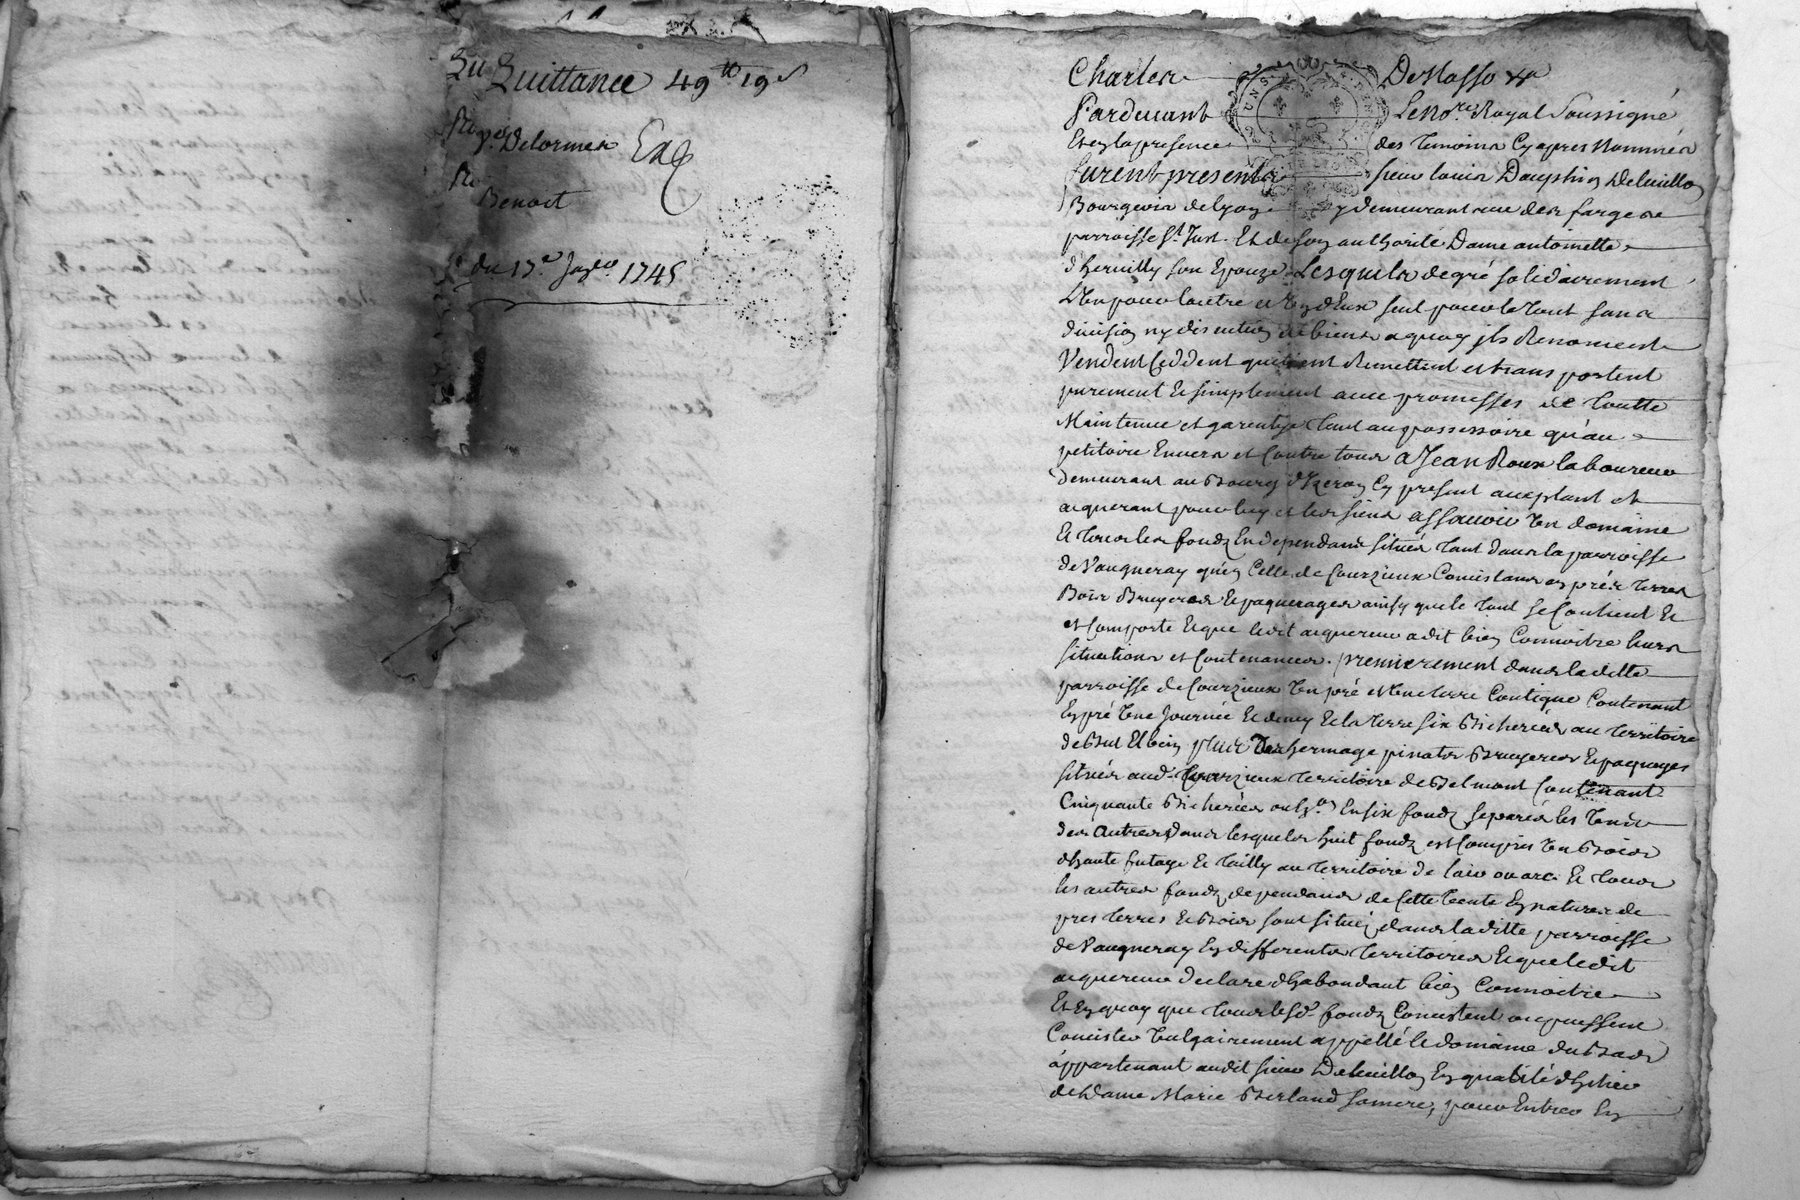 Quittance 49 19
Delorme
Benoit
du 17e 1745
Charles
Pardevant Le Nore Royal Soussigné
Et en la presence des temoins cy apres nommés
furent presents sieur louis Dauphin
Bourgeois de Lyon y demeurant rue des farges
parroisse St Just. Et de son authorité Dame antoinette
son Epouze. Lesquels de gré solidairement
L'un pour lautre et un d'Eux seul pour le tout sans
division ny discution de biens a quoy ils Renoncent
Vendent Ceddent quittent Remettent et trans portent
purement et simplement avec promesses de toutte
Maintenue et garentye tant au possessoire qu'au
petitoire Envers et Contre tous A Jean Roux laboureur
demeurant au Bourg d'Izeron Cy present acceptant et
aquerant pour luy et les siens assavoir un domaine
Et tous les fondz En dependans situés tant dans la parroisse
de Vaugneray qu'en Celle de Courzieux Concistans en prés terres
Bois Bruyeres et paquerages ainsy que le tout se Contient et
et Comporte Et que ledit aquereur a dit bien Connoitre leurs
situations et Contenances. premierement dans la ditte
parroisse de Courzieux un pré et une terre Contigue Contenant
En pré une Journée et demy et la terre six Bicherées au territoire
de plus un hermage pinates Bruyeres et paquages
situés aud. Courzieux territoire de Belmont Contenant
Cinquante Bicherées En six fondz separés les uns
des autres dans lesquels huit fondz est Compris un Bois
d'haute futaye et tailly au territoire de Et tous
les autres fondz dependans de Cette vente En natures de
pres terres et Bois sont situéz dans la ditte parroisse
de Vaugneray En differents territoires Et que ledit
aquereur declare d'habondant bien Connoitre
Et En quoy que tous lesd. fondz Concistent ou puissent
Concister vulgairement appellé le domaine du
appartenant audit sieur En qualité d'hritier
de Dame Marie Berland sa mere, pour Entrer En